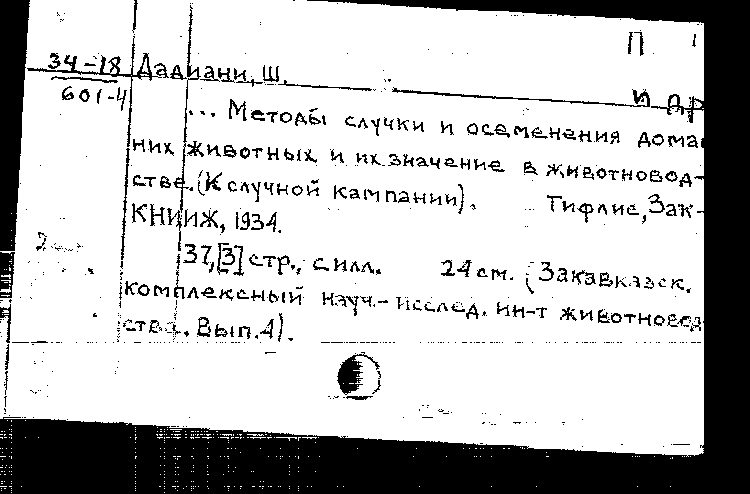 П
34-18 Дадиани, Ш.
601-4 и др
... Методы случки и осеменения дома
них животных и их значение в животновод-
стве. (К случной кампании). Тифлис, Зак-
КНИИЖ, 1934.
37,[3] стр., с илл. 24 см. (Закавказск.
комплексный науч.-исслед. ин-т животновод
ства. Вып. 4).